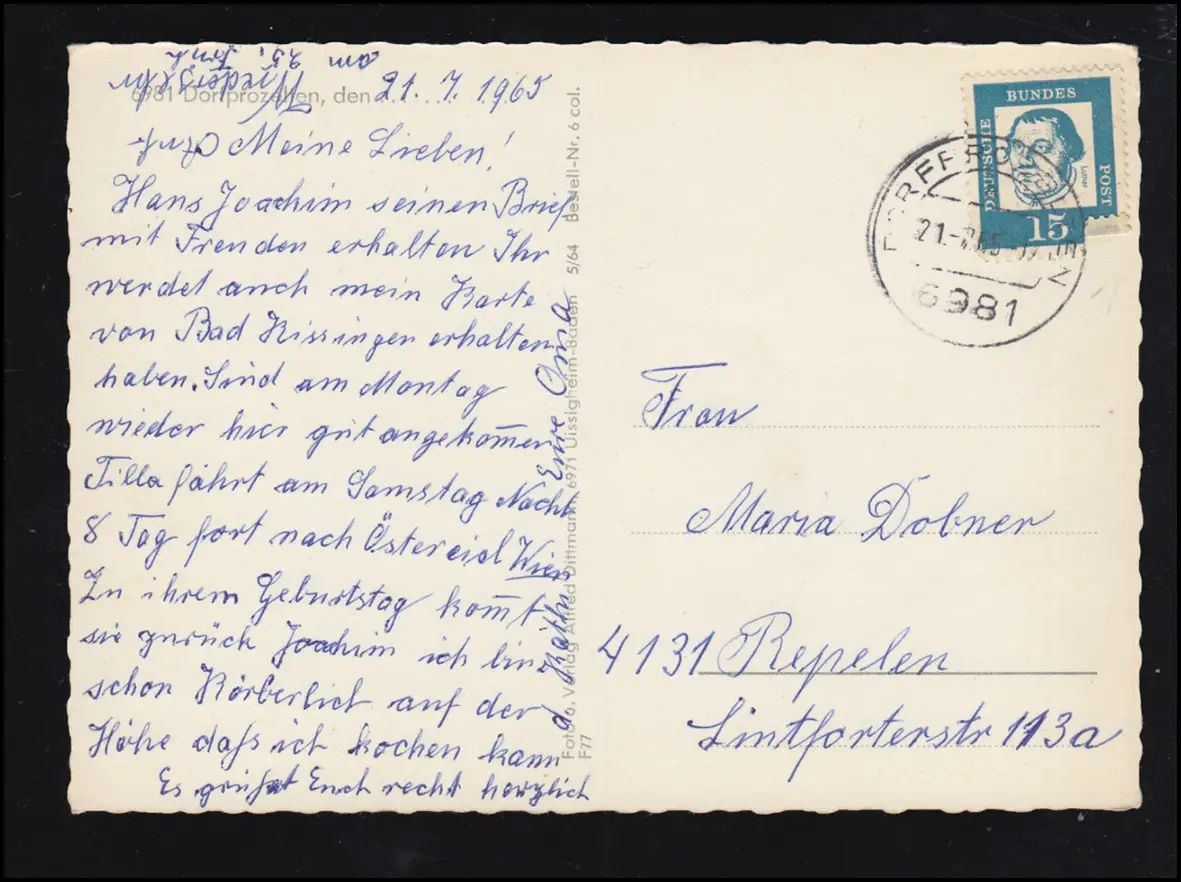 6981 Dorfprozelten, den 21. 7. 1965
Meine Lieben!
Hans Joachim seinen Brief
mit Freuden erhalten Ihr
werdet auch mein Karte
von Bad Kissingen erhalten
haben. Sind am Montag
wieder hier gut angekom̅en
Tilla fährt am Samstag Nacht
8 Tag fort nach Östereich Wien
Zu ihrem Geburtstag kom̅t
sie zurück Joachim ich bin
schon Körberlich auf der
Höhe daß ich kochen kann
Es grüßt Euch recht herzlich
Eure Oma
am 25. Früh
Foto u. Verlag Alfred Dittmann, 6971 Uissigheim-Baden 5/64 Bestell-Nr. 6 col.
F77
DEUTSCHE
BUNDES
POST
Luther
15
DORFPROZELTEN
21.-7.65
6981
Frau
Maria Dobner
4131 Repelen
Lintforterstr 113a